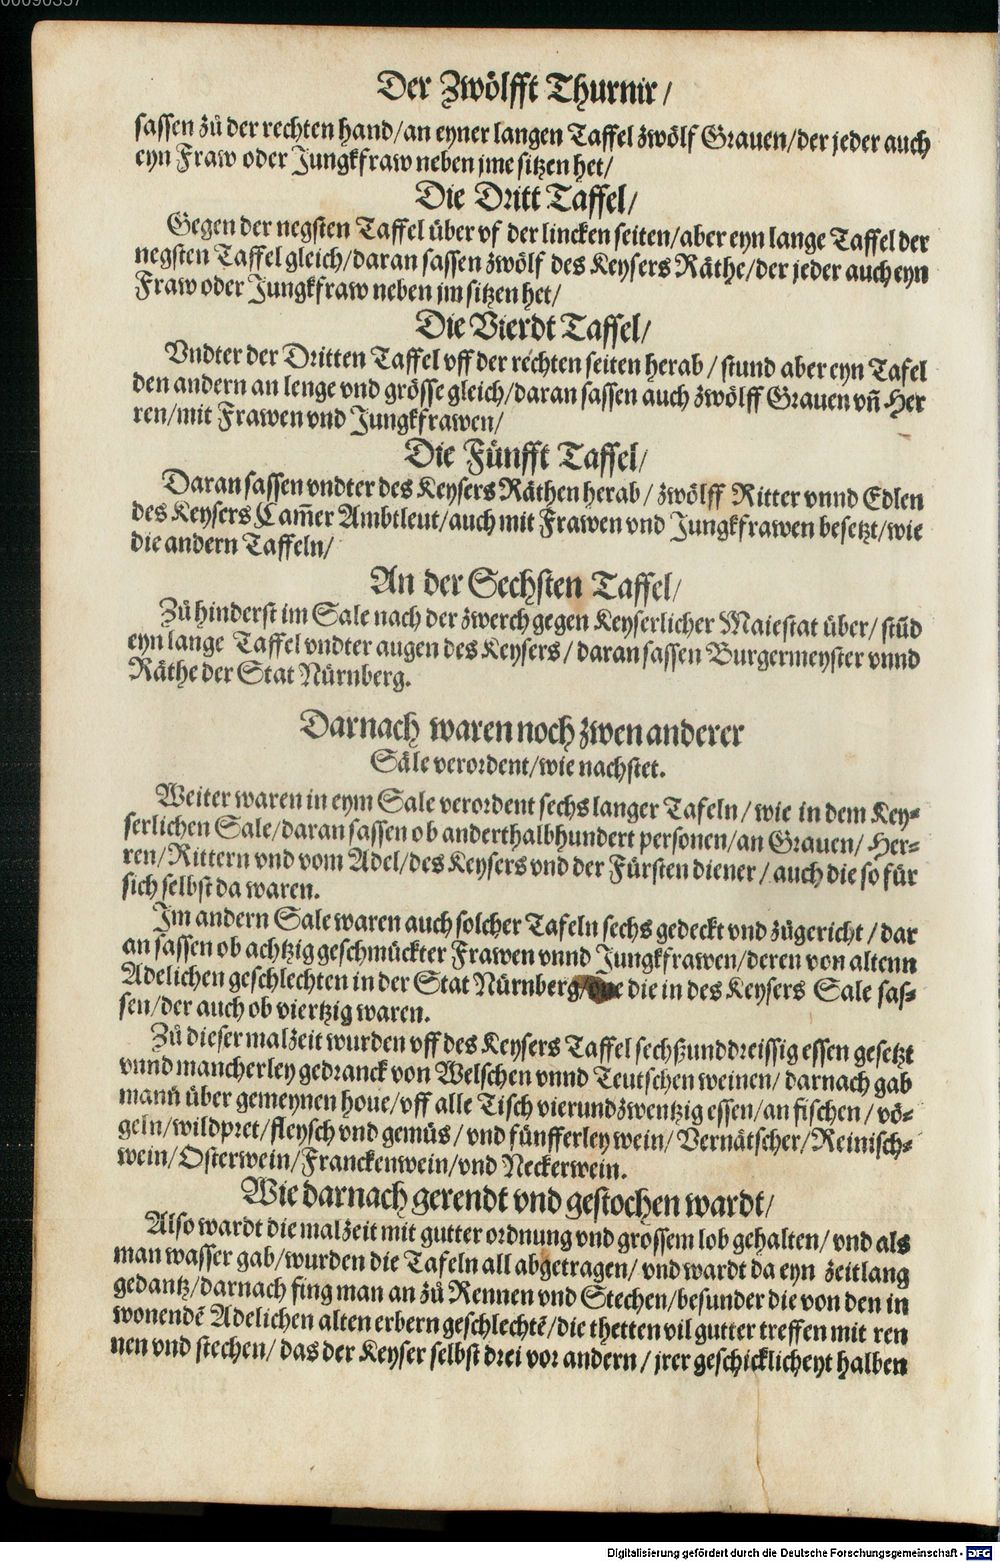 00090357
Der Zwölfft Thurnir/
sassen zů der rechten hand/an eyner langen Taffel zwölf Grauen/der jeder auch
eyn Fraw oder Jungkfraw neben jme sitzen het/
Die Dritt Taffel/
Gegen der negsten Taffel über vf der lincken seiten/aber eyn lange Taffel der
negsten Taffel gleich/daran sassen zwölf des Keysers Räthe/der jeder auch eyn
Fraw oder Jungkfraw neben jm sitzen het/
Die Vierdt Taffel/
Vndter der Dritten Taffel vff der rechten seiten herab/ stund aber eyn Tafel
den andern an lenge vnd grösse gleich/daran sassen auch zwölff Grauen vñ Her
ren/mit Frawen vnd Jungkfrawen/
Die Fünfft Taffel/
Daran sassen vndter des Keysers Räthen herab/ zwölff Ritter vnnd Edlen
des Keysers Cam̃er Ambtleut/auch mit Frawen vnd Jungkfrawen besetzt/wie
die andern Taffeln/
An der Sechsten Taffel/
Zů hinderst im Sale nach der zwerch gegen Keyserlicher Maiestat über/ stůd
eyn lange Taffel vndter augen des Keysers/ daran sassen Burgermeyster vnnd
Räthe der Stat Nürnberg.
Darnach waren noch zwen anderer
Säle verordent/wie nachstet.
Weiter waren in eym Sale verordent sechs langer Tafeln/ wie in dem Key-
serlichen Sale/daran sassen ob anderthalbhundert personen/an Grauen/ Her-
ren/Rittern vnd vom Adel/des Keysers vnd der Fürsten diener/ auch die so für
sich selbst da waren.
Im andern Sale waren auch solcher Tafeln sechs gedeckt vnd zůgericht/ dar
an sassen ob achtzig geschmückter Frawen vnnd Jungkfrawen/deren von altenn
Adelichen geschlechten in der Stat Nürnberg/ die in des Keysers Sale sas-
sen/der auch ob viertzig waren.
Zů dieser malzeit wurden vff des Keysers Taffel sechßunddreissig essen gesetzt
vnnd mancherley gedranck von Welschen vnnd Teutschen weinen/ darnach gab
mann über gemeynen houe/vff alle Tisch vierundzwentzig essen/an fischen/ vö-
geln/wildpret/fleysch vnd gemüs/ vnd fünfferley wein/ Vernätscher/Reinisch-
wein/Osterwein/Franckenwein/vnd Neckerwein.
Wie darnach gerendt vnd gestochen wardt/
Also wardt die malzeit mit gutter ordnung vnd grossem lob gehalten/ vnd als
man wasser gab/wurden die Tafeln all abgetragen/ vnd wardt da eyn zeitlang
gedantz/darnach fing man an zů Rennen vnd Stechen/besunder die von den in
wonendẽ Adelichen alten erbern geschlechtẽ/die thetten vil gutter treffen mit ren
nen vnd stechen/ das der Keyser selbst drei vor andern/ jrer geschicklicheyt halben
Digitalisierung gefördert durch die Deutsche Forschungsgemeinschaft - DFG